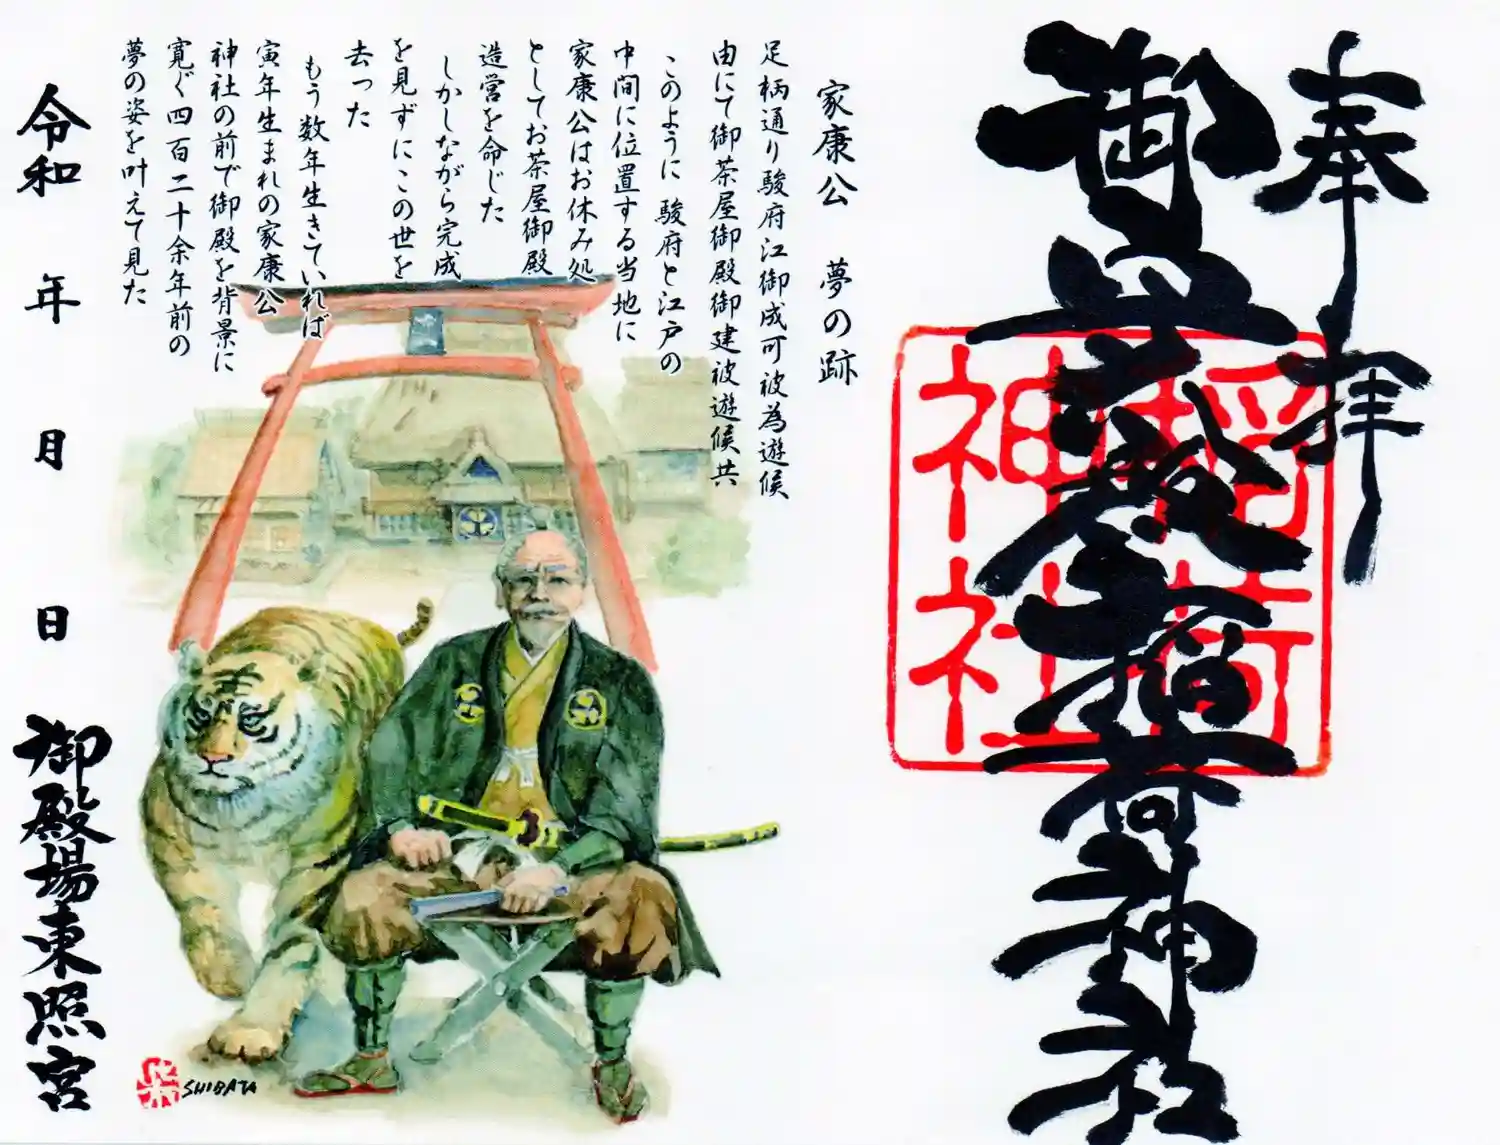 奉拝
御殿稲荷神社
稲荷
神社
家康公 夢の跡
足柄通り駿府江御成可被為遊候
由にて御茶屋御殿御建被遊候共
このように 駿府と江戸の
中間に位置する当地に
家康公はお休み処
としてお茶屋御殿
造営を命じた
しかしながら完成
を見ずにこの世を
去った
もう数年生きていれば
寅年生まれの家康公
神社の前で御殿を背景に
寛ぐ四百二十余年前の
夢の姿を叶えて見た
令和 年 月 日
御殿場東照宮
SHIBATA